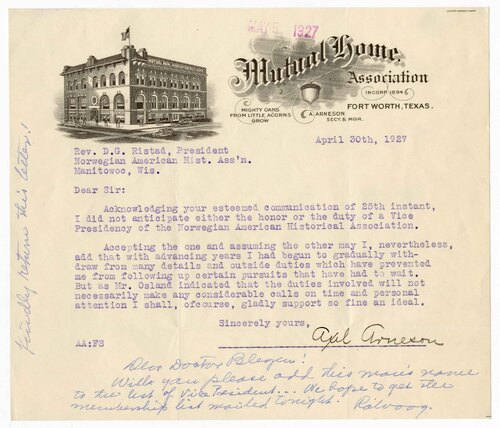 MAY 5 1927
Mutual Home
Association
INCORP. 1894
FORT WORTH, TEXAS.
MIGHTY OAKS
FROM LITTLE ACORNS
GROW
A. ARNESON
SECY. & MGR.
April 30th, 1927
Rev. D.G. Ristad, President
Norwegian American Hist. Ass'n.
Manitowoc, Wis.
Dear Sir:
Acknowledging your esteemed communication of 28th instant,
I did not anticipate either the honor or the duty of a Vice
Presidency of the Norwegian American Historical Association.
Accepting the one and assuming the other may I, nevertheless,
add that with advancing years I had begun to gradually with-
draw from many details and outside duties which have prevented
me from following up certain pursuits that have had to wait.
But as Mr. Osland indicated that the duties involved will not
necessarily make any considerable calls on time and personal
attention I shall, ofcourse, gladly support so fine an ideal.
Sincerely yours,
Axel Arneson
AA:FS
Dear Doctor Blegen!
Will you please add this man's name
to the list of Vice President... We hope to get the
membership list mailed tonight.
Kindly return this letter!